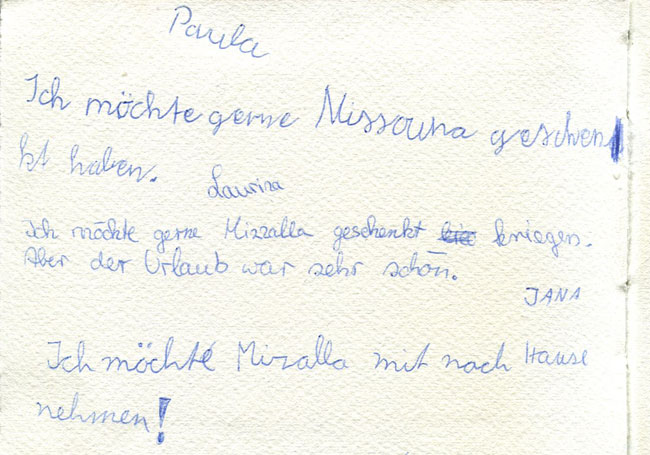 Paula
Ich möchte gerne Missouna geschen
kt haben.
Laurina
Ich möchte gerne Mizzalla geschenkt kriegen.
Aber der Urlaub war sehr schön.
JANA
Ich möchte Mizalla mit nach Hause
nehmen!